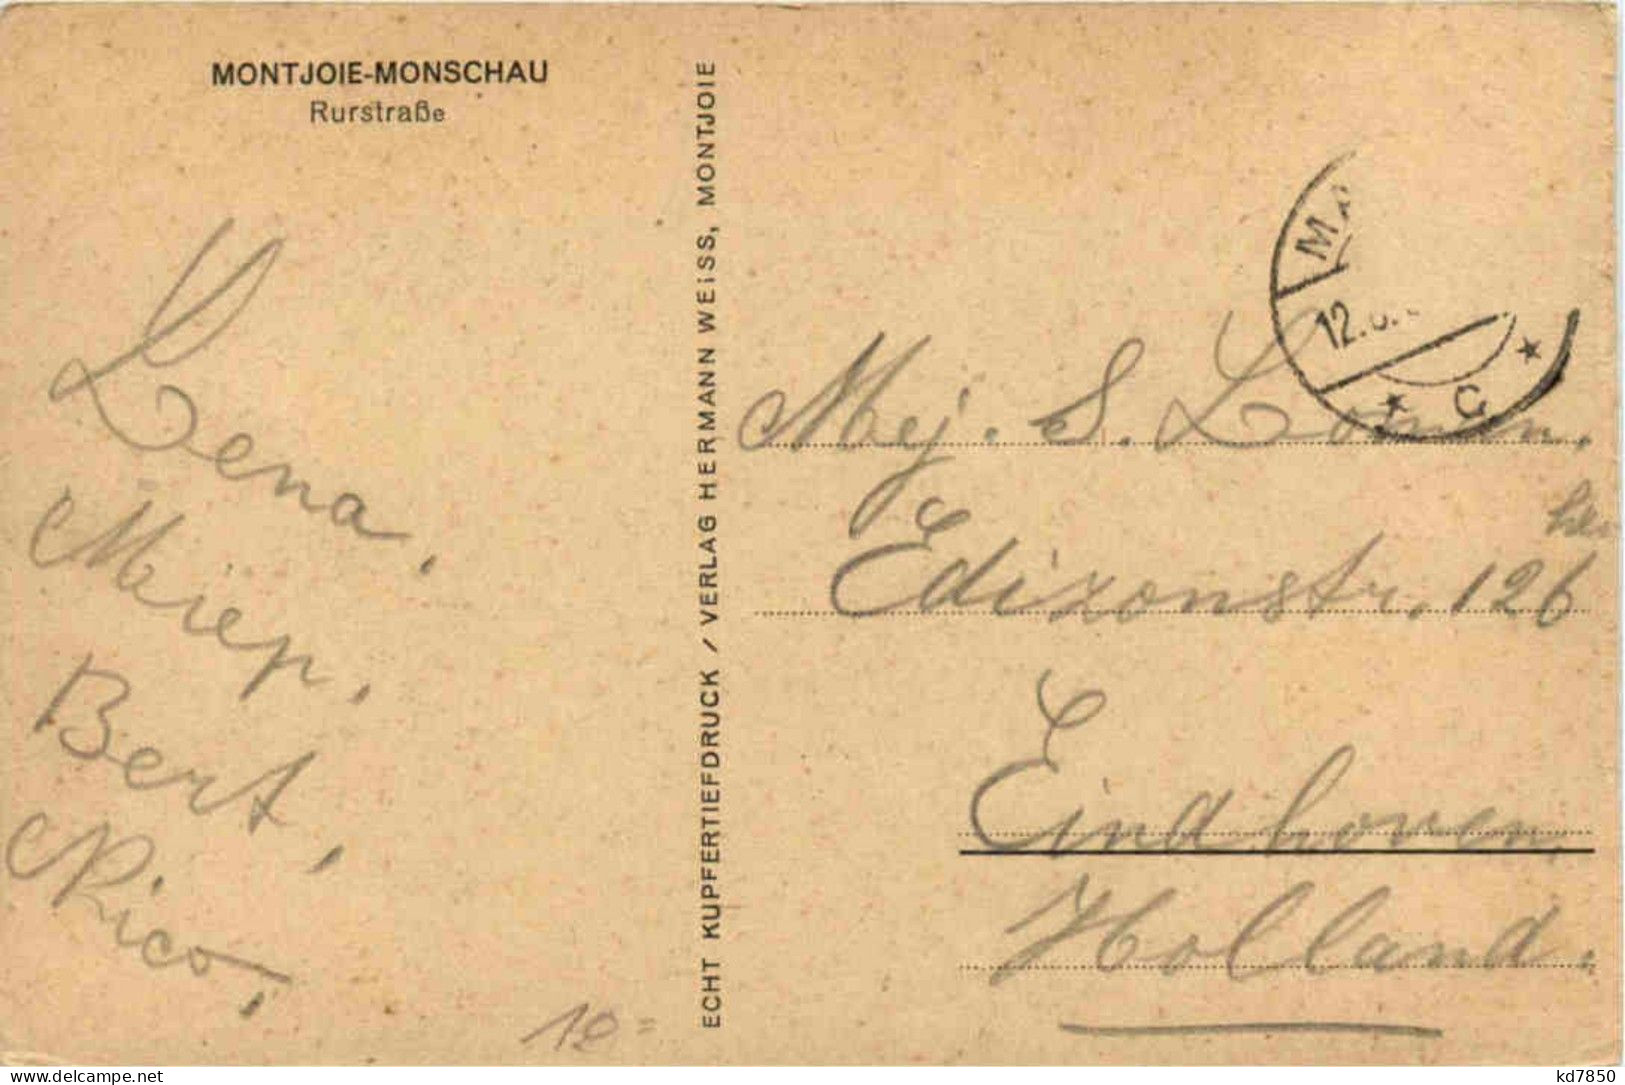 MONTJOIE-MONSCHAU
Rurstraße
Lena,
Miep,
Bert,
Nico,
10=
ECHT KUPFERTIEFDRUCK / VERLAG HERMANN WEISS, MONTJOIE
M
12.
* C *
Mej. S.
Edizonstr. 126
Eindhoven,
Holland.
kd7850